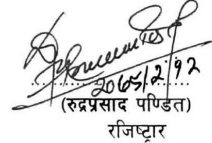 २०६५/२/१२
(रुद्रप्रसाद पण्डित)
रजिष्ट्रार